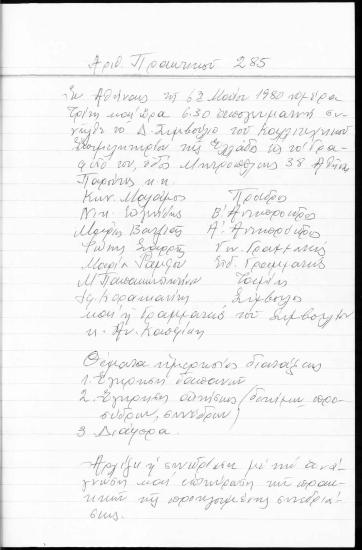 Αριθ. Πρακτικού 285
Εν Αθήναις τη 6η Μαΐου 1980 ημέρα
Τρίτη και ώρα 6.30 απογευματινή συ-
νήλθε το Δ. Συμβούλιο του Καλλιτεχνικού
Επιμελητηρίου της Ελλάδος εις τα Γρα-
φεία του, οδός Μητροπόλεως 38 Αθήναι
Παρόντες κ.κ.
Κων. Πρόεδρος
Νικ. Β. Αντιπρόεδρος
Μαρία Α. Αντιπρόεδρος
Φώτης Γεν. Γραμματεύς
Μαρία Ειδ. Γραμματεύς
Μ. Παπακωνσταντίνου Ταμίας
Καραμάνης Σύμβουλος
και η Γραμματεύς του Συμβουλίου
κ. Αν.
Θέματα ημερησίας διατάξεως
1. Έγκριση δαπανών
2. Έγκρισης αιτήσεως (δοκίμων, προ-
σέδρων, συνέδρων)
3 Διάφορα.
Αρχίζει η συνεδρίαση με την ανά-
γνωση και επικύρωση των πρακ-
τικών της προηγούμενης συνεδριά-
σεως.